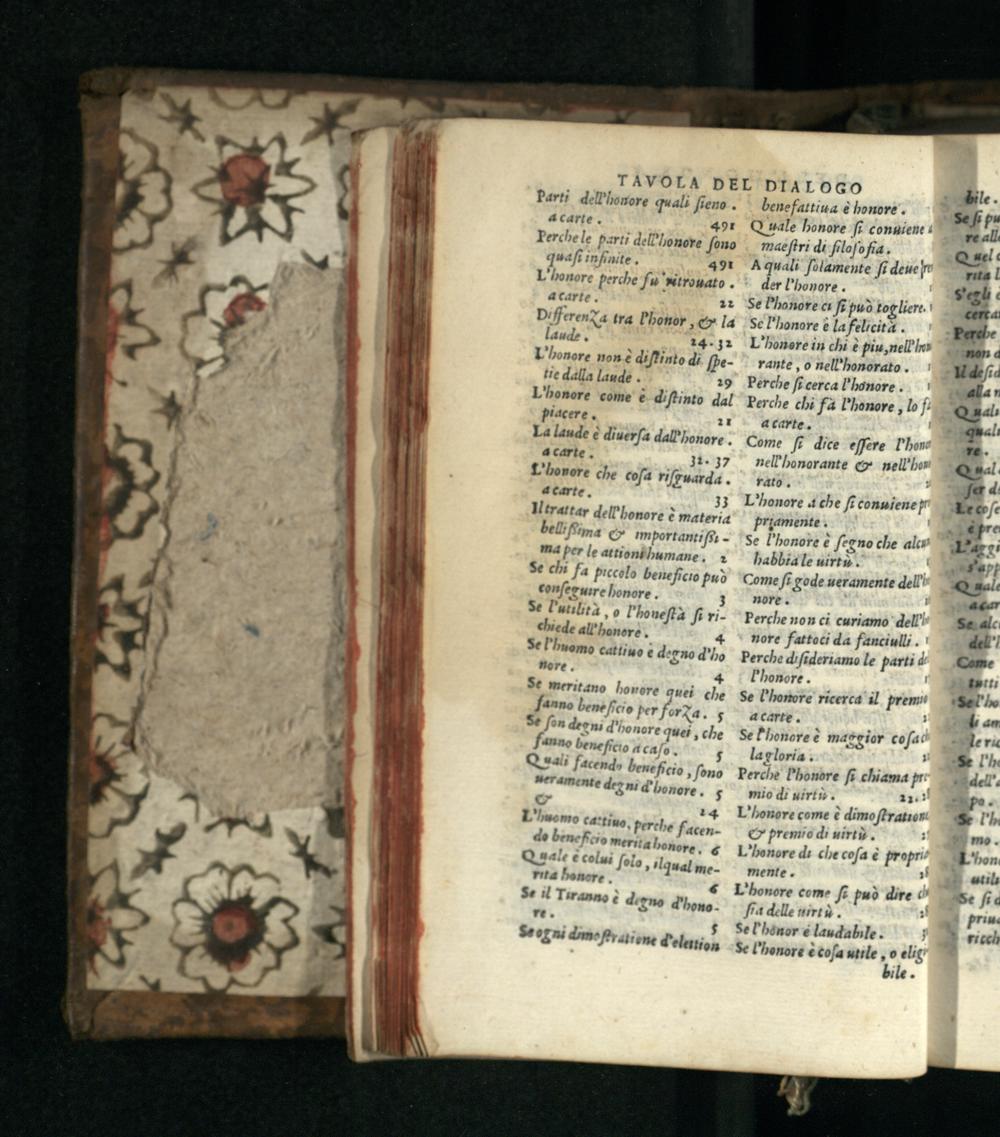 TAVOLA DEL DIALOGO
Parti dell'honore quali ſieno.
a carte. 491
Perche le parti dell'honore ſono
quaſi infinite. 491
L'honore perche fu ritrouato.
a carte. 22
Differenza tra l'honor, & la
laude. 24.32
L'honore non è diſtinto di ſpe-
tie dalla laude. 29
L'honore come è diſtinto dal
piacere. 21
La laude è diuerſa dall'honore.
a carte. 32.37
L'honore che coſa riſguarda.
a carte. 33
Il trattar dell'honore è materia
belliſsima & importantiſsi-
ma per le attioni humane. 2
Se chi fa piccolo beneficio può
conſeguire honore. 3
Se l'utilità, o l'honeſtà ſi ri-
chiede all'honore. 4
Se l'huomo cattiuo è degno d'ho
nore. 4
Se meritano honore quei che
fanno beneficio per forza. 5
Se ſon degni d'honore quei, che
fanno beneficio a caſo. 5
Quali facendo beneficio, ſono
ueramente degni d'honore. 5
& 14
L'huomo cattiuo, perche facen-
do beneficio merita honore. 6
Quale è colui ſolo, ilqual me-
rita honore. 6
Se il Tiranno è degno d'hono-
re. 5
Se ogni dimoſtratione d'elettion
benefattiua è honore.
Quale honore ſi conuiene a
maeſtri di filoſofia.
A quali ſolamente ſi deue
der l'honore.
Se l'honore ci ſi può togliere.
Se l'honore è la felicità.
L'honore in chi è piu, nell'hon
rante, o nell'honorato.
Perche ſi cerca l'honore.
Perche chi fà l'honore, lo f
a carte.
Come ſi dice eſſere l'hono
nell'honorante & nell'hon
rato.
L'honore a che ſi conuiene pr
priamente.
Se l'honore è ſegno che alcu
habbia le uirtù.
Come ſi gode ueramente dell'h
nore.
Perche non ci curiamo dell'h
nore fattoci da fanciulli.
Perche diſideriamo le parti de
l'honore.
Se l'honore ricerca il premi
a carte.
Se l'honore è maggior coſa
la gloria.
Perche l'honore ſi chiama pre
mio di uirtù.
L'honore come è dimoſtration
& premio di uirtù.
L'honore di che coſa è propri
mente.
L'honore come ſi può dire ch
ſia delle uirtù.
Se l'honor è laudabile.
Se l'honore è coſa utile, o elig
bile.
bile.
Se ſi pu
re all
Quel
rita l
S'egli
cerca
Perche
non
Il deſid
alla
Quali
quali
re.
Qual
ſer d
Le coſe
è pre
L'aggi
s'app
Quale
a car
Se alc
dell'
Come
tutti
Se l'ho
li am
le ric
Se l'h
dell'
po.
Se l'h
mo.
L'hon
utili
Se ſi d
priu
ricch